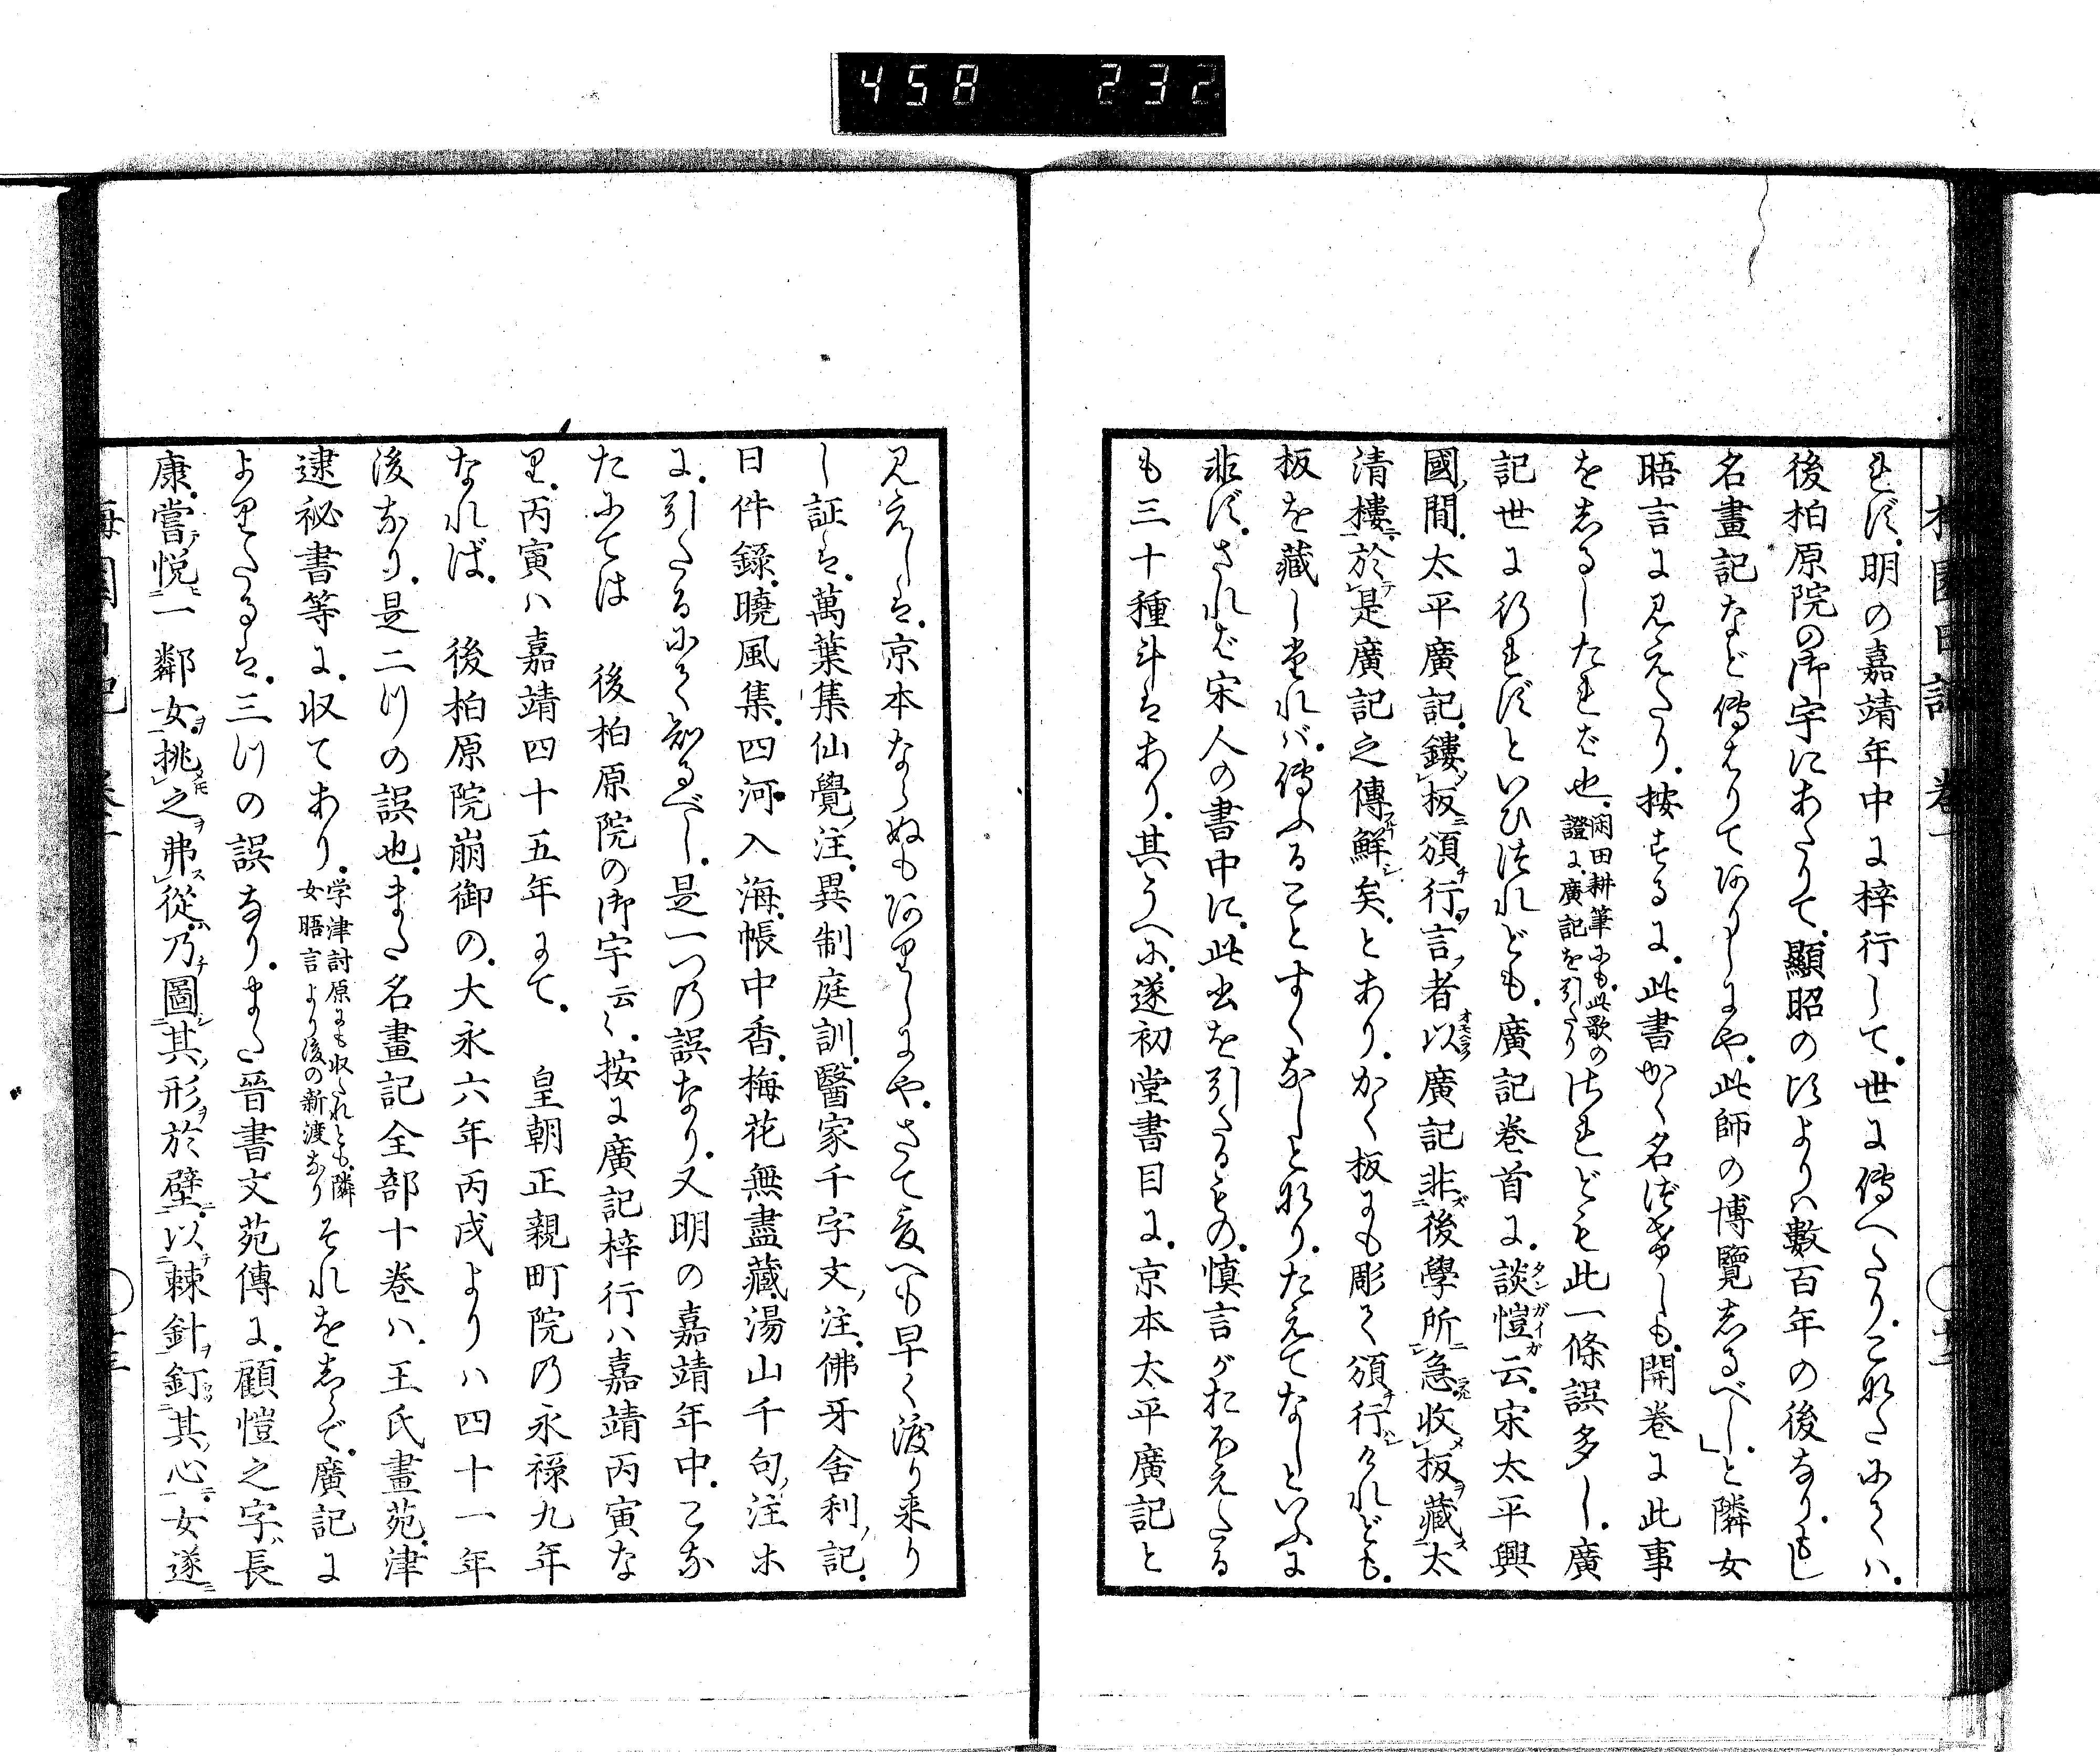 458 232
れず。明の嘉靖年中に梓行して。世に傳へたり。こなたにてハ。
後柏原院の御宇にあたりて。顯昭の比よりハ數百年の後なり。もし
名畫記など傳はりてありしにや。此師の博覽しるべし。」と隣女
晤言に見えたり。按ずるに。此書かく名づけしも。開卷に此事
をしるしたれば也。
閑田耕筆にも。此歌の
證に。廣記を引たり
されども此一條誤多し。廣
記世に行れずといひつれども。廣記卷首に。談愷云。宋太平興
國ノ間。太平廣記。鏤板頒行。言者以廣記非後學所急。收板藏太
清樓。於是廣記之傳鮮矣。とあり。かく板にも彫て頒行けれども。
板を藏し堂れバ。傳ふることすくなしと也。たえてなしといふに
非ず。されば宋人の書中に。此書を引たるもの。慎言がおぼえたる
も三十種斗はあり。其うへに。遂初堂書目に。京本太平廣記と
見えしは。京本ならぬもありしにや。さて爰へも早く渡り来り
し証は。萬葉集仙覺ノ注。異制庭訓。醫家千字文ノ注。佛牙舍利ノ記。
日件錄。曉風集。四河入海。帳中香。梅花無盡藏。湯山千句ノ注ホ
に。引たるにて知るべし。是一つの誤なり。又明の嘉靖年中。こな
たにては 後柏原院の御宇云々。按に廣記梓行ハ嘉靖丙寅な
り。丙寅ハ嘉靖四十五年にて。 皇朝正親町院の永祿九年
なれば。 後柏原院崩御の。大永六年丙戌よりハ四十一年
後なり。是二つの誤也。また名畫記全部十卷ハ。王氏畫苑。津
逮祕書等に。收てあり。
学津討原にも收たれとも。隣
女晤言より後の新渡なり
それをしらで。廣記に
よりたるは。三つの誤なり。また晋書文苑傳に。顧愷之字ハ長
康。嘗悅一鄰女。挑之弗從。乃圖其形於壁。以棘針釘其心。女遂